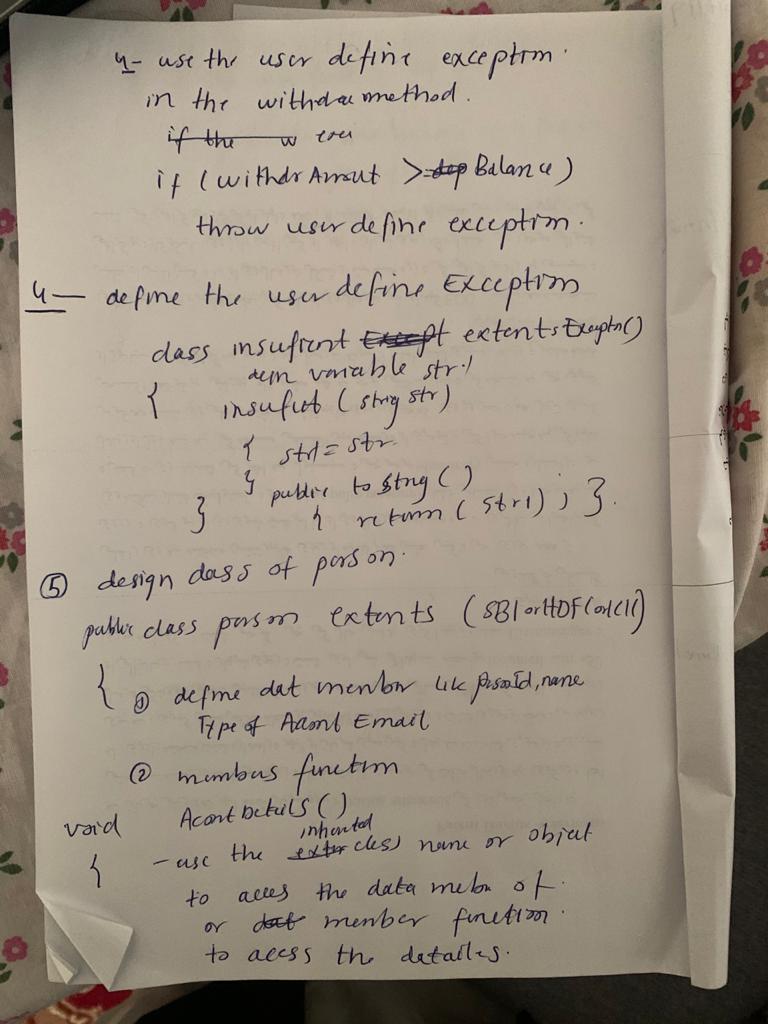 4- use the user define exception.
in the withdra method.
if the w
if (withdr Amout >= Balance)
throw user define exception.
4— define the user define Exception
class insufient extents Exceptn()
variable str1
{ insufiet (stng str)
{ str1 = str
} public to Stng ( )
} { return ( str1) ; }.
⑤ design class of person.
public class person extents (SBI or HDFC or ICICI)
{ ① define dat member like personId, name
Type of Aaont Email
② membus function
void Acont Details ( )
inherited
{ - use the class name or object
to acces the data mebr of.
or member function.
to acess the detailes.